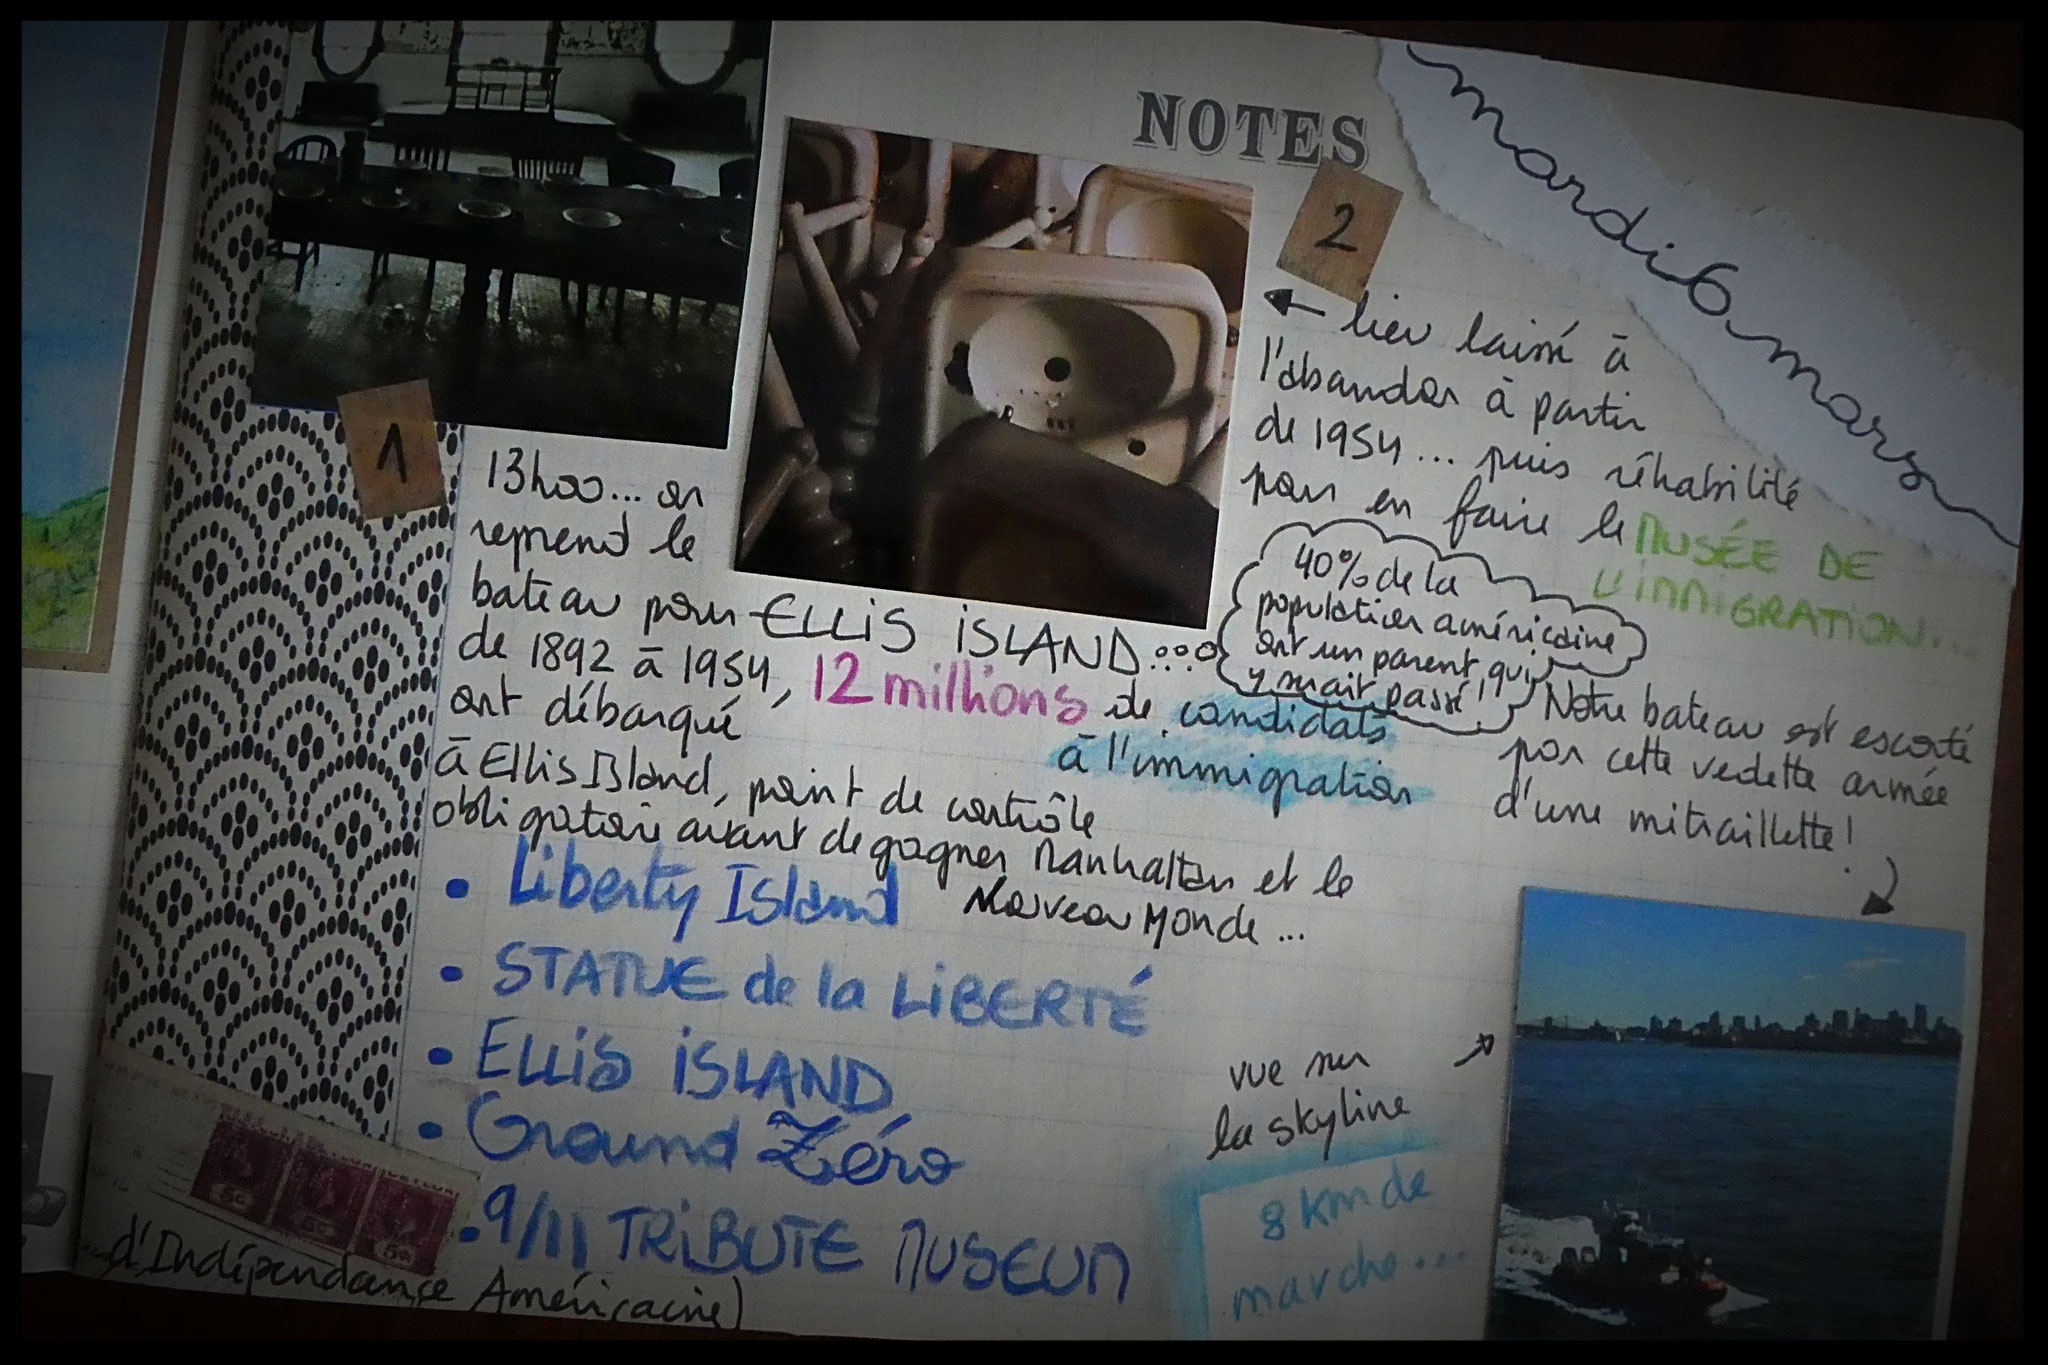 NOTES
mardi 6 mars
2
← lieu laissé à
l'abandon à partir
de 1954... puis réhabilité
pour en faire le MUSÉE DE
L'IMMIGRATION...
1
13h00... on
reprend le
bateau pour ELLIS ISLAND...
de 1892 à 1954, 12 millions de candidats
à l'immigration
ont débarqué
à Ellis Island, point de contrôle
obligatoire avant de gagner Manhattan et le
Nouveau Monde...
40% de la
population américaine
ont un parent qui
y serait passé!
Notre bateau est escorté
par cette vedette armée
d'une mitraillette!
• Liberty Island
• STATUE de la LIBERTÉ
• ELLIS ISLAND
• Ground Zéro
• 9/11 TRIBUTE MUSEUM
vue sur
la skyline
8 km de
marche...
d'Indépendance Américaine)